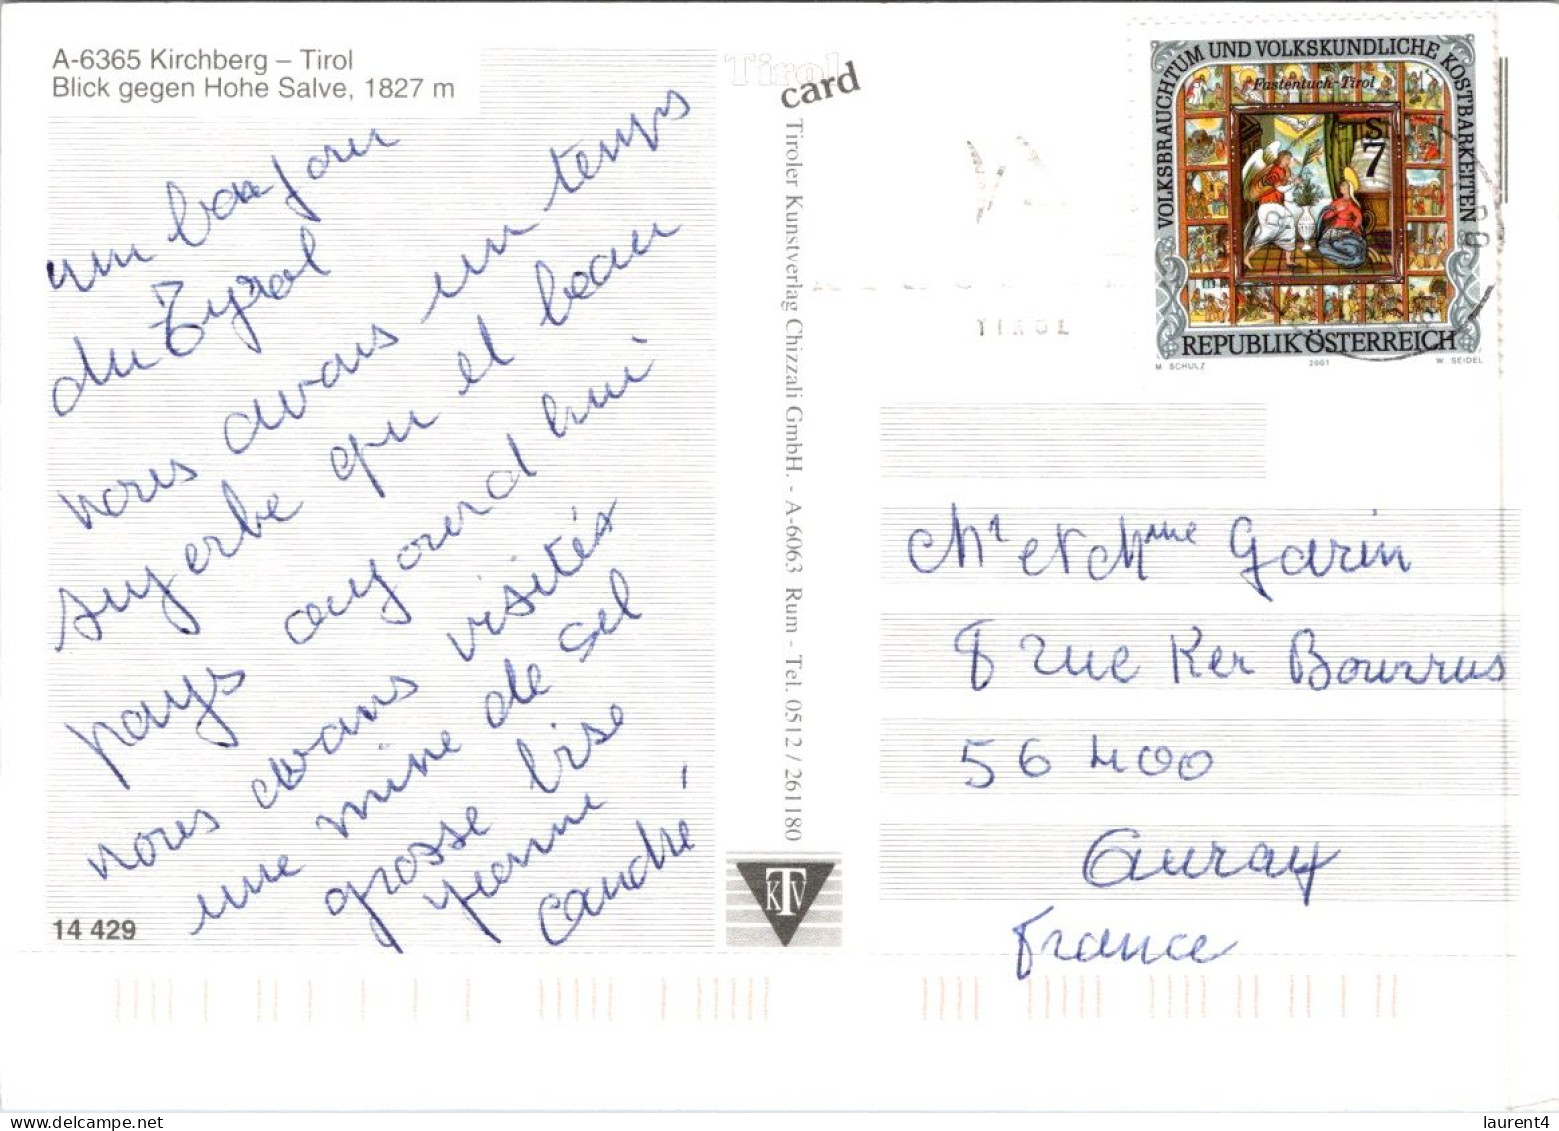 A-6365 Kirchberg – Tirol
Blick gegen Hohe Salve, 1827 m
un bonjour
du Tyrol
nous avons un temps
superbe qu el beau
pays aujourd hui
nous avons visités
une mine de sel
grosse bise
André
14 429
Tirol
card
Tiroler Kunstverlag Chizzali GmbH. - A-6063 Rum - Tel. 0512 / 261180
KTV
TIROL
VOLKSBRAUCHTUM UND VOLKSKUNDLICHE KOSTBARKEITEN
Fastentuch-Tirol
S
7
REPUBLIK ÖSTERREICH
M SCHULZ 2001 W. SEIDEL
Mr et Mme Garin
8 rue Ker Bourrus
56 400
Auray
France
laurent4